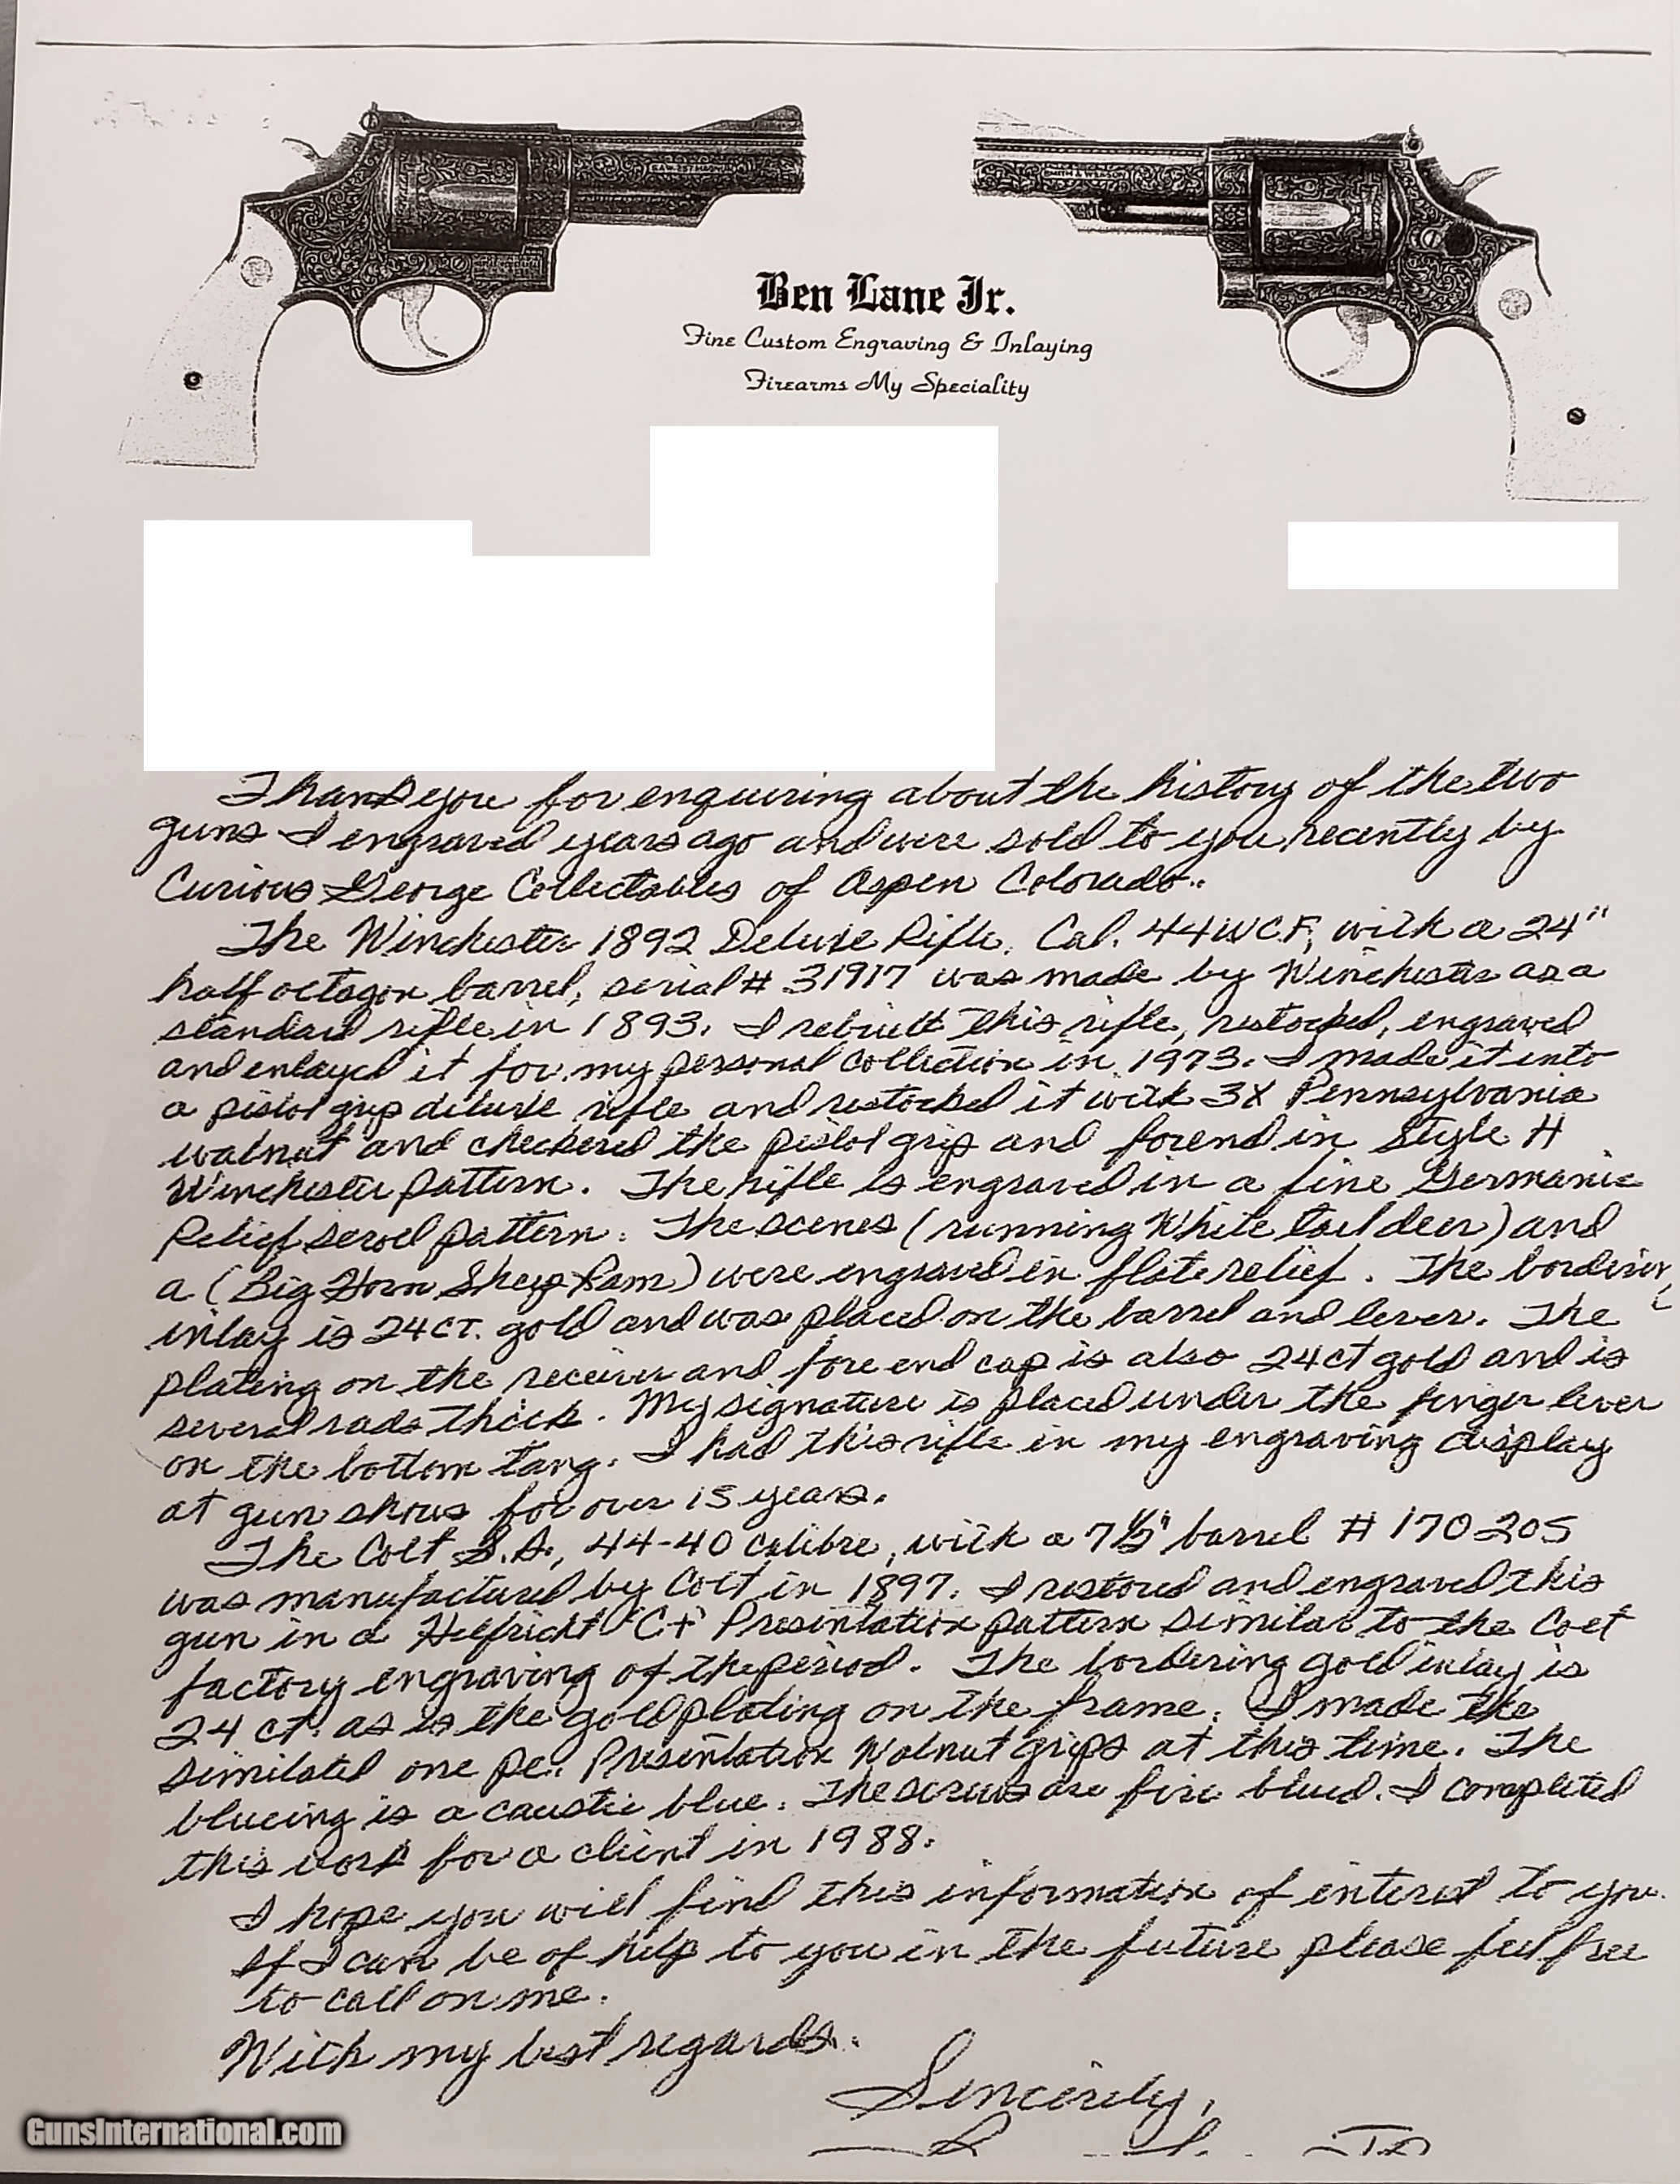 Ben Lane Jr.
Fine Custom Engraving & Inlaying
Firearms My Speciality
SMITH & WESSON
Thank you for enquiring about the history of the two
guns I engraved years ago and were sold to you recently by
Curious George Collectables of Aspen Colorado.
The Winchester 1892 Deluxe Rifle, Cal. 44 WCF, with a 24"
half octagon barrel, serial # 31917 was made by Winchester as a
standard rifle in 1893. I rebuilt this rifle, restocked, engraved
and enlayed it for my personal collection in 1973. I made it into
a pistol grip deluxe rifle and restocked it with 3X Pennsylvania
walnut and checkered the pistol grip and forend in Style H
Winchester pattern. The rifle is engraved in a fine Germanic
Relief scroll pattern. The scenes (running White tail deer) and
a (Big Horn Sheep Ram) were engraved in flate relief. The bordering
inlay is 24 CT. gold and was placed on the barrel and lever. The
plating on the receiver and fore end cap is also 24 ct gold and is
several rads thick. My signature is placed under the finger lever
on the bottom tang. I had this rifle in my engraving display
at gun shows for over 15 years.
The Colt S.A., 44-40 calibre, with a 7½" barrel # 170205
was manufactured by Colt in 1897. I restored and engraved this
gun in a Helfricht "C+" Presentation pattern similar to the Colt
factory engraving of the period. The bordering gold inlay is
24 ct. as is the gold plating on the frame. I made the
similated one pc. Presentation Walnut grips at this time. The
blueing is a caustic blue. The screws are fire blued. I completed
this work for a client in 1988.
I hope you will find this information of interest to you.
If I can be of help to you in the future please feel free
to call on me.
With my best regards.
Sincerely,
GunsInternational.com